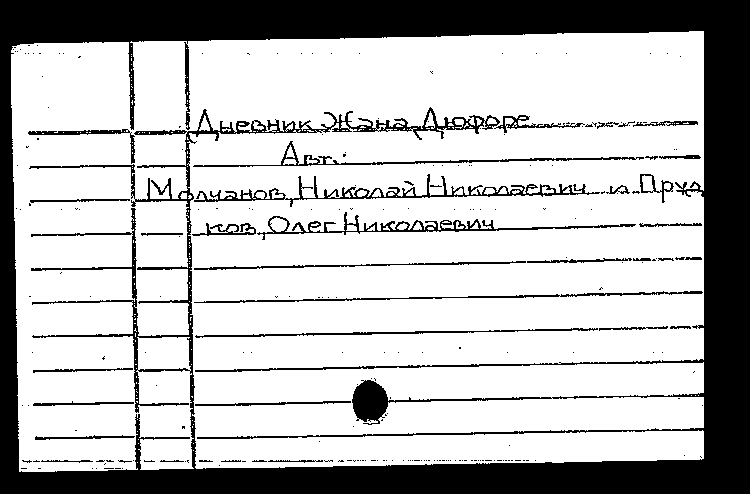 Дневник Жана Дюфоре
Авт.:
Молчанов, Николай Николаевич и Пруд
ков, Олег Николаевич